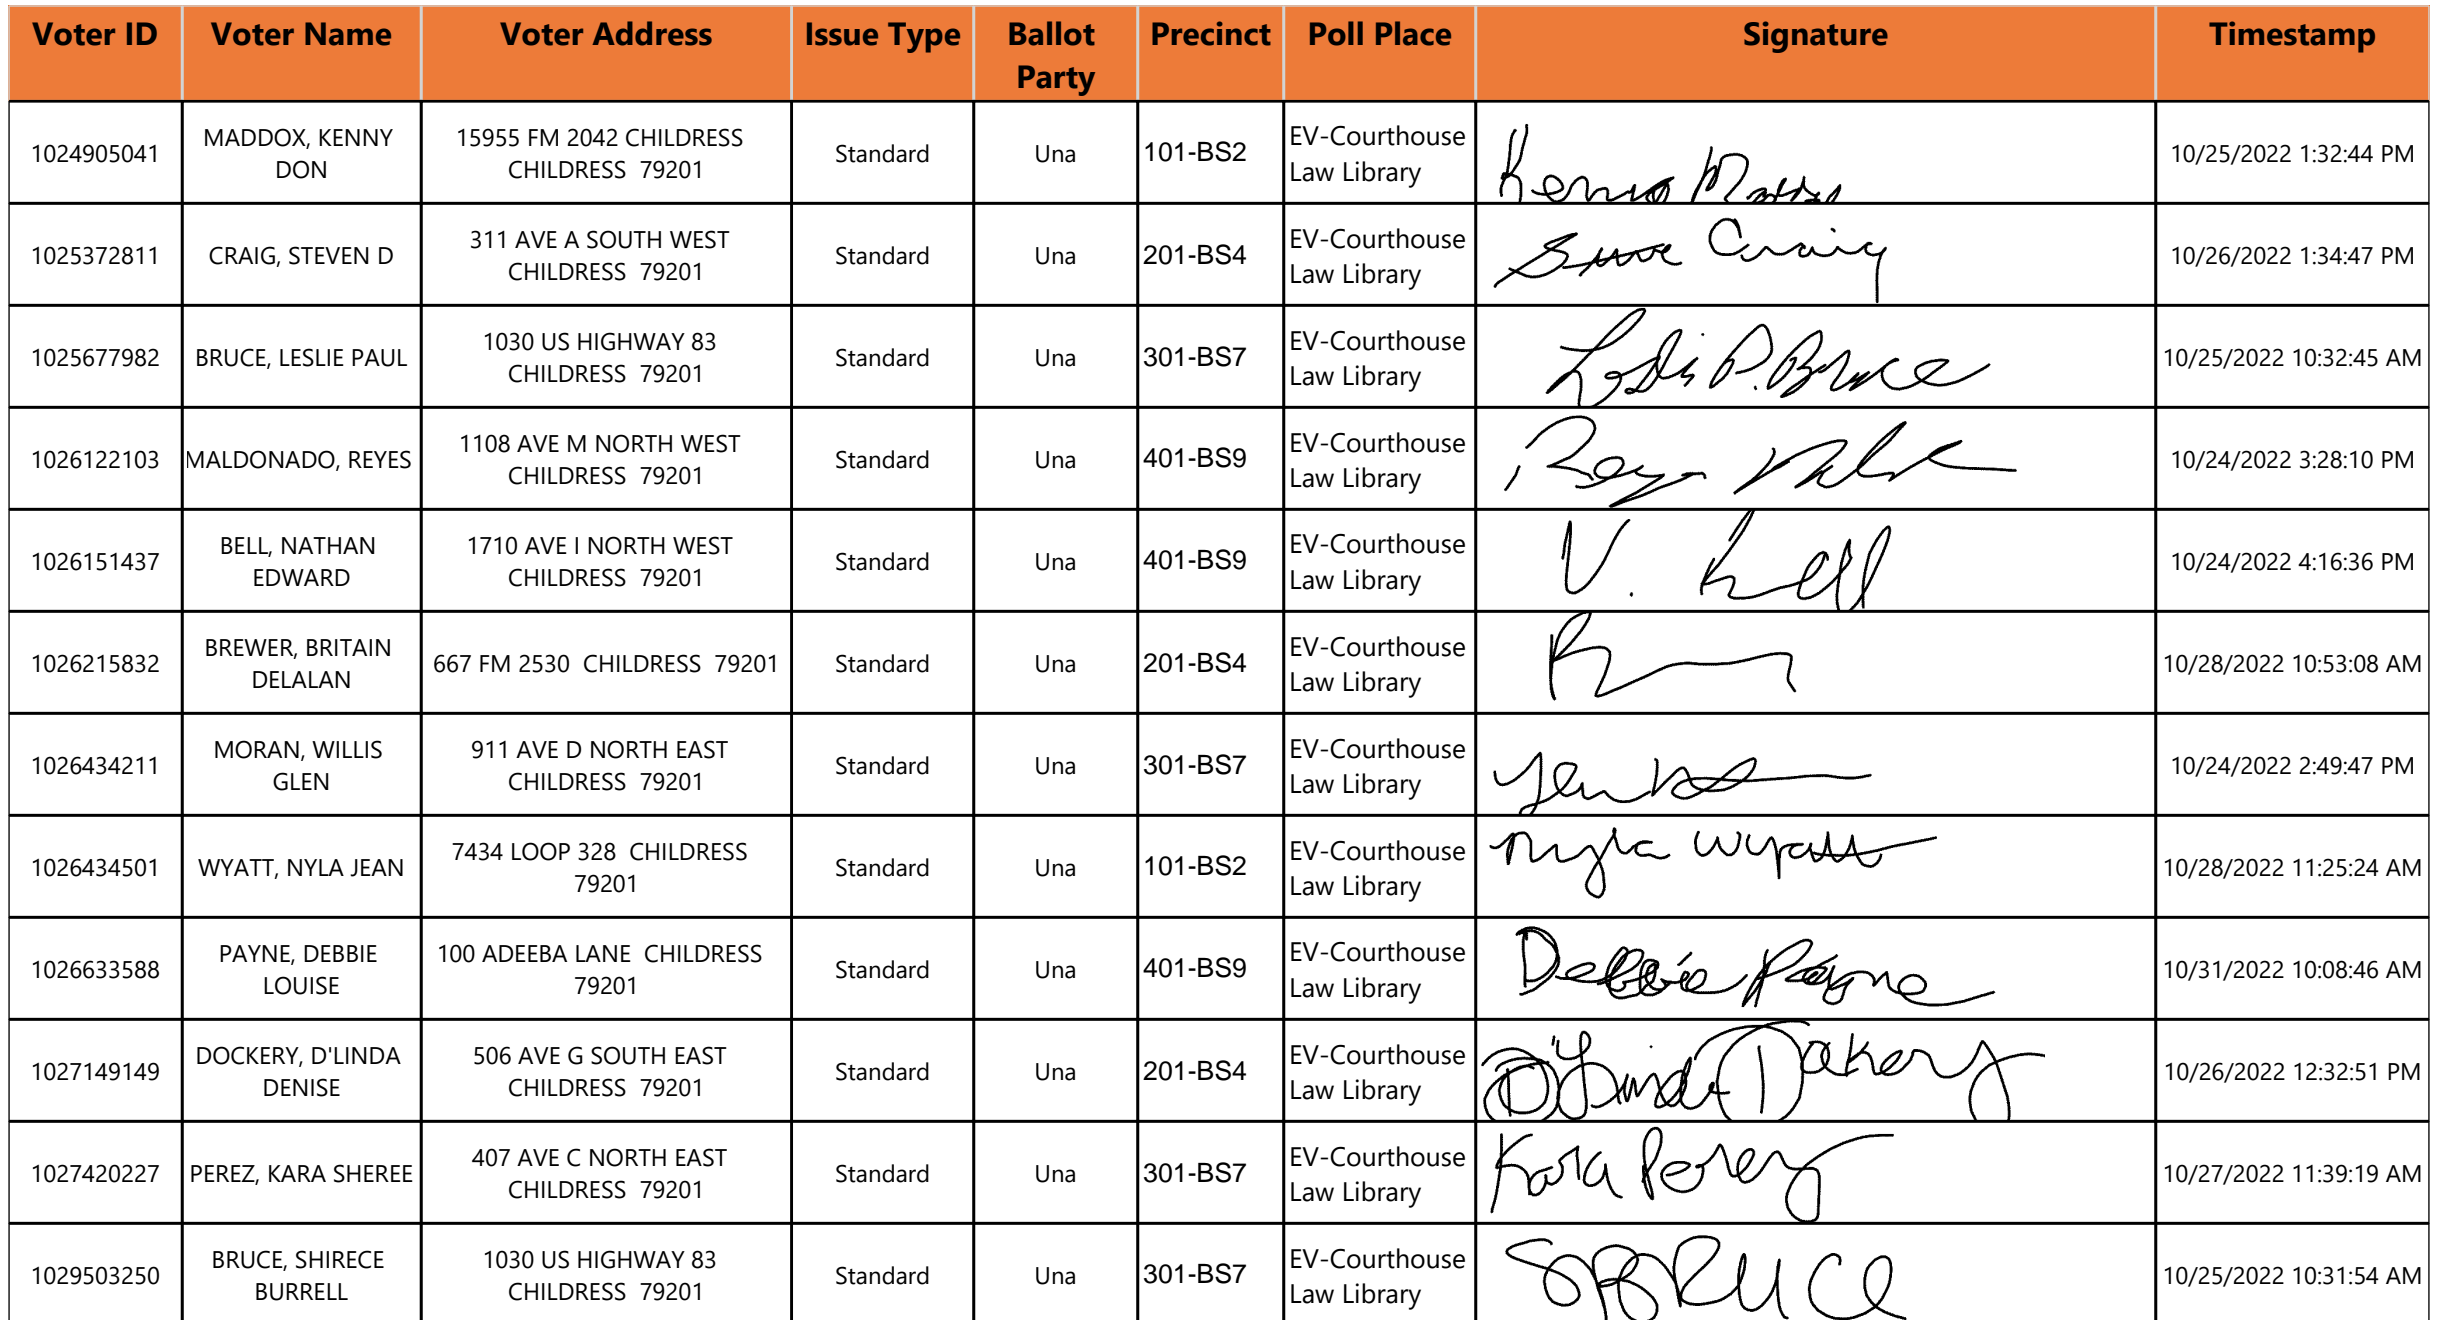 Voter ID Voter Name Voter Address Issue Type Ballot Party Precinct Poll Place Signature Timestamp
1024905041 MADDOX, KENNY DON 15955 FM 2042 CHILDRESS CHILDRESS 79201 Standard Una 101-BS2 EV-Courthouse Law Library Kenny Maddox 10/25/2022 1:32:44 PM
1025372811 CRAIG, STEVEN D 311 AVE A SOUTH WEST CHILDRESS 79201 Standard Una 201-BS4 EV-Courthouse Law Library Steve Craig 10/26/2022 1:34:47 PM
1025677982 BRUCE, LESLIE PAUL 1030 US HIGHWAY 83 CHILDRESS 79201 Standard Una 301-BS7 EV-Courthouse Law Library Leslie P. Bruce 10/25/2022 10:32:45 AM
1026122103 MALDONADO, REYES 1108 AVE M NORTH WEST CHILDRESS 79201 Standard Una 401-BS9 EV-Courthouse Law Library 10/24/2022 3:28:10 PM
1026151437 BELL, NATHAN EDWARD 1710 AVE I NORTH WEST CHILDRESS 79201 Standard Una 401-BS9 EV-Courthouse Law Library 10/24/2022 4:16:36 PM
1026215832 BREWER, BRITAIN DELALAN 667 FM 2530 CHILDRESS 79201 Standard Una 201-BS4 EV-Courthouse Law Library 10/28/2022 10:53:08 AM
1026434211 MORAN, WILLIS GLEN 911 AVE D NORTH EAST CHILDRESS 79201 Standard Una 301-BS7 EV-Courthouse Law Library 10/24/2022 2:49:47 PM
1026434501 WYATT, NYLA JEAN 7434 LOOP 328 CHILDRESS 79201 Standard Una 101-BS2 EV-Courthouse Law Library Nyla Wyatt 10/28/2022 11:25:24 AM
1026633588 PAYNE, DEBBIE LOUISE 100 ADEEBA LANE CHILDRESS 79201 Standard Una 401-BS9 EV-Courthouse Law Library Debbie Payne 10/31/2022 10:08:46 AM
1027149149 DOCKERY, D'LINDA DENISE 506 AVE G SOUTH EAST CHILDRESS 79201 Standard Una 201-BS4 EV-Courthouse Law Library D'Linda Dockery 10/26/2022 12:32:51 PM
1027420227 PEREZ, KARA SHEREE 407 AVE C NORTH EAST CHILDRESS 79201 Standard Una 301-BS7 EV-Courthouse Law Library Kara Perez 10/27/2022 11:39:19 AM
1029503250 BRUCE, SHIRECE BURRELL 1030 US HIGHWAY 83 CHILDRESS 79201 Standard Una 301-BS7 EV-Courthouse Law Library SBBRUCE 10/25/2022 10:31:54 AM